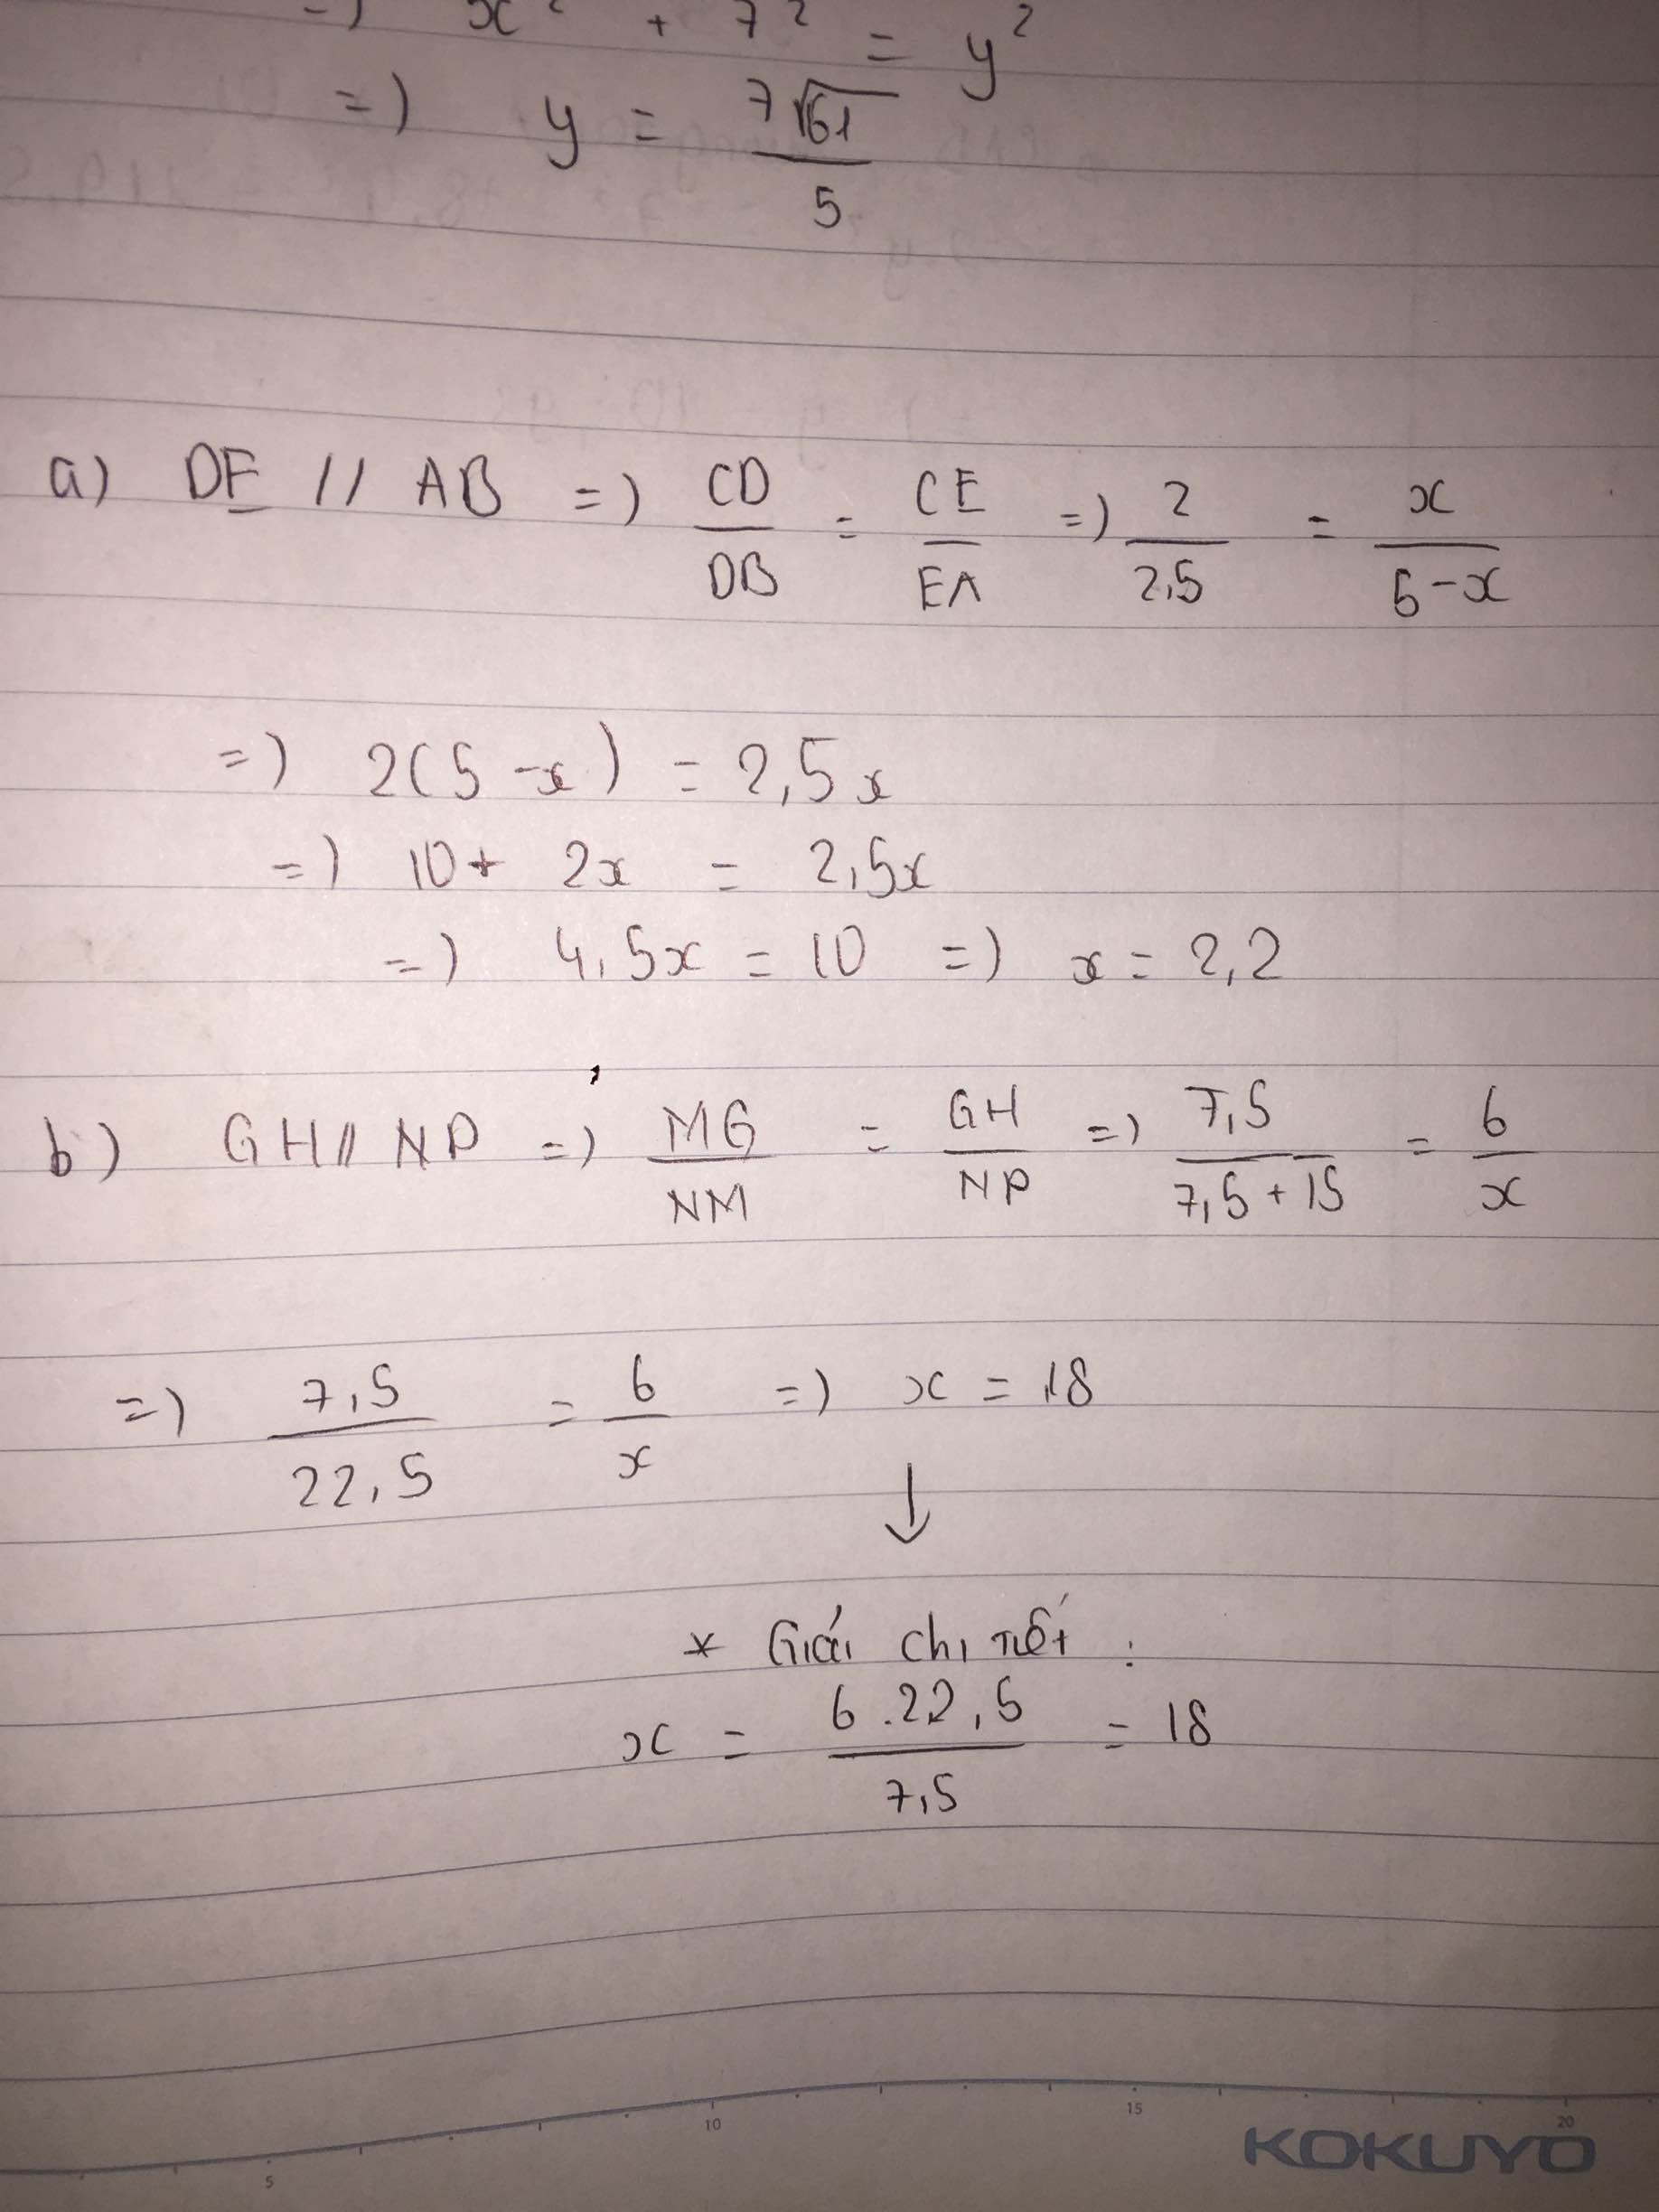 =) x² + 7² = y²
=) y = 7√61 / 5
a) DE // AB =) CD/DB = CE/EA =) 2/2,5 = x/5-x
=) 2(5-x) = 2,5x
=) 10+ 2x = 2,5x
=) 4,5x = 10 =) x = 2,2
b) GH // NP =) MG/NM = GH/NP =) 7,5/7,5+15 = 6/x
=) 7,5/22,5 = 6/x =) x = 18
↓
* Giải chi tiết :
x = 6.22,5/7,5 = 18
5 10 15 20
KOKUYO